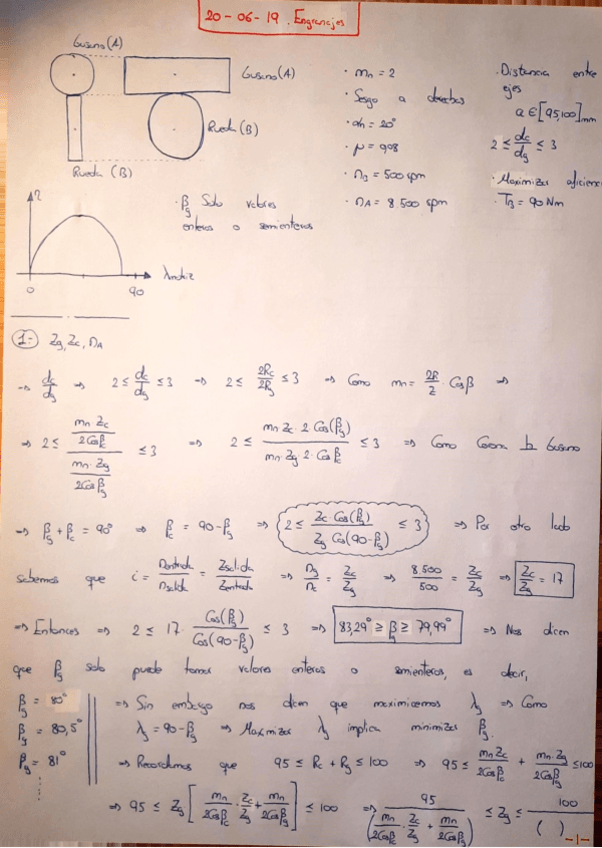 20-06-19. Engranajes
Gusano(A)
Gusano(A)
Rueda(B)
Rueda (B)
· mn = 2
· Sesgo a derechas
· αn = 20°
· μ = 0,08
· nB = 500 rpm
· nA = 8 500 rpm
· Distancia entre
ejes
a ∈ [95,100] mm
2 ≤ dc/dg ≤ 3
· Maximizar eficienc
· TB = 90 Nm
η
λmotriz
0
90
· βg Solo valores
enteros o semienteros
1.- Zg, Zc, nA
→ dc/dg ⇒ 2 ≤ dc/dg ≤ 3 ⇒ 2 ≤ 2Rc/2Rg ≤ 3 ⇒ Como mn = 2R/Z · Cosβ ⇒
⇒ 2 ≤ (mn Zc / 2Cosβc) / (mn·Zg / 2Cosβg) ≤ 3 ⇒ 2 ≤ mn Zc · 2 Cos(βg) / mn·Zg 2·Cosβc ≤ 3 ⇒ Como Corona ⊥ Gusano
⇒ βg + βc = 90° ⇒ βc = 90-βg ⇒ 2 ≤ Zc·Cos(βg) / Zg·Cos(90-βg) ≤ 3 ⇒ Por otro lado
sabemos que i = nentrada/nsalida = Zsalida/Zentrada ⇒ ng/nc = Zc/Zg ⇒ 8 500/500 = Zc/Zg ⇒ Zc/Zg = 17
⇒ Entonces ⇒ 2 ≤ 17· Cos(βg)/Cos(90-βg) ≤ 3 ⇒ 83,29° ≥ βg ≥ 79,99° ⇒ Nos dicen
que βg solo puede tomar valores enteros o semienteros, es decir,
βg = 80°
βg = 80,5°
βg = 81°
⇒ Sin embargo nos dicen que maximicemos λg ⇒ Como
λg = 90-βg ⇒ Maximizar λg implica minimizar βg.
⇒ Recordamos que 95 ≤ Rc + Rg ≤ 100 ⇒ 95 ≤ mn Zc/2Cosβc + mn·Zg/2Cosβg ≤ 100
⇒ 95 ≤ Zg [ mn/2Cosβc · Zc/Zg + mn/2Cosβg ] ≤ 100 ⇒ 95 / (mn/2Cosβc · Zc/Zg + mn/2Cosβg) ≤ Zg ≤ 100 / ( )
-1-